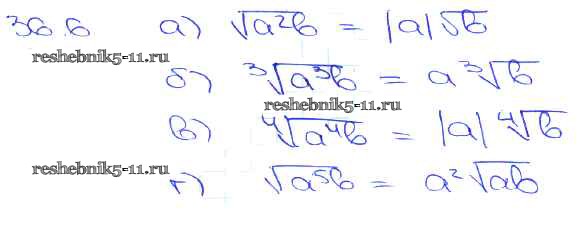 36.6 а) √a²b = |a|√b
reshebnik5-11.ru
б) ³√a³b = a ³√b
reshebnik5-11.ru
в) ⁴√a⁴b = |a| ⁴√b
reshebnik5-11.ru
г) √a⁵b = a²√ab